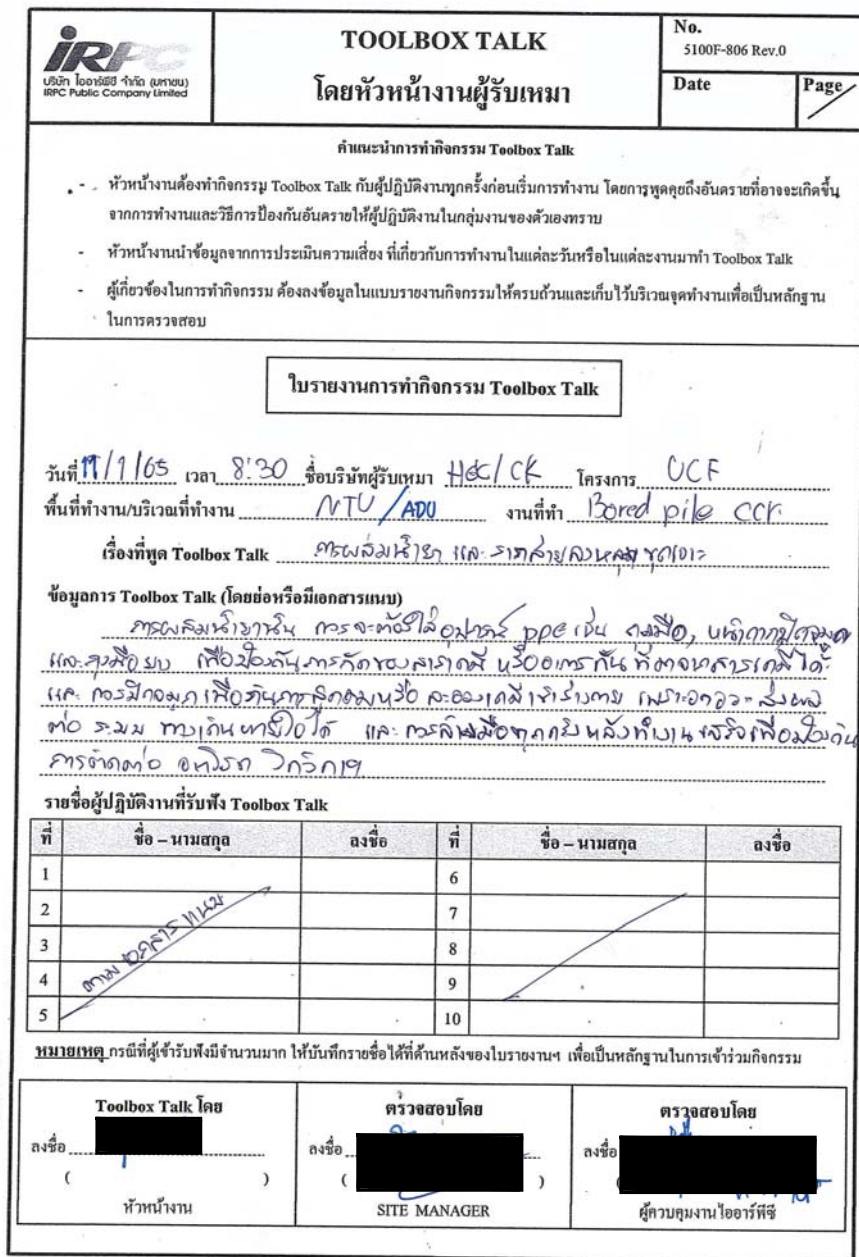 IRPC
บริษัท ไออาร์พีซี จำกัด (มหาชน)
IRPC Public Company Limited
TOOLBOX TALK
โดยหัวหน้างานผู้รับเหมา
No.
5100F-806 Rev.0
Date
Page
คำแนะนำการทำกิจกรรม Toolbox Talk
- หัวหน้างานต้องทำกิจกรรม Toolbox Talk กับผู้ปฏิบัติงานทุกครั้งก่อนเริ่มการทำงาน โดยการพูดคุยถึงอันตรายที่อาจจะเกิดขึ้น
จากการทำงานและวิธีการป้องกันอันตรายให้ผู้ปฏิบัติงานในกลุ่มงานของตัวเองทราบ
- หัวหน้างานนำข้อมูลจากการประเมินความเสี่ยง ที่เกี่ยวกับการทำงานในแต่ละวันหรือในแต่ละงานมาทำ Toolbox Talk
- ผู้เกี่ยวข้องในการทำกิจกรรม ต้องลงข้อมูลในแบบรายงานกิจกรรมให้ครบถ้วนและเก็บไว้บริเวณจุดทำงานเพื่อเป็นหลักฐาน
ในการตรวจสอบ
ใบรายงานการทำกิจกรรม Toolbox Talk
วันที่ /1/65 เวลา 8:30 ชื่อบริษัทผู้รับเหมา โครงการ UCF
พื้นที่ทำงาน/บริเวณที่ทำงาน NTU/ADU งานที่ทำ Bored pile ccr.
เรื่องที่พูด Toolbox Talk การผสมน้ำยา และ ลงหลุม ขุดเจาะ
ข้อมูลการ Toolbox Talk (โดยย่อหรือมีเอกสารแนบ)
การผสมน้ำยานั้น ควรจะต้องใส่อุปกรณ์ ppe เช่น ถุงมือ, หน้ากากปิดจมูก
และถุงมือยาง เพื่อป้องกันการกัดของสารเคมี หรืออาการคัน ที่อาจ สารเคมีได้
และ ควรปิดจมูก เพื่อกันการสูดดมหรือ ละอองเคมีเข้าร่างกาย เพราะอาจจะส่งผล
ต่อ ระบบ ทางเดินหายใจได้ และ ควรล้างมือทุกครั้ง หลังทำงานเสร็จเพื่อป้องกัน
การติดต่อ
รายชื่อผู้ปฏิบัติงานที่รับฟัง Toolbox Talk
ที่ ชื่อ – นามสกุล ลงชื่อ ที่ ชื่อ – นามสกุล ลงชื่อ
1 6
2 7
3 8
4 9
5 10
ตามเอกสารแนบ
หมายเหตุ กรณีที่ผู้เข้ารับฟังมีจำนวนมาก ให้บันทึกรายชื่อได้ที่ด้านหลังของใบรายงานฯ เพื่อเป็นหลักฐานในการเข้าร่วมกิจกรรม
Toolbox Talk โดย
ลงชื่อ
( )
หัวหน้างาน
ตรวจสอบโดย
ลงชื่อ
( )
SITE MANAGER
ตรวจสอบโดย
ลงชื่อ
(
ผู้ควบคุมงานไออาร์พีซี